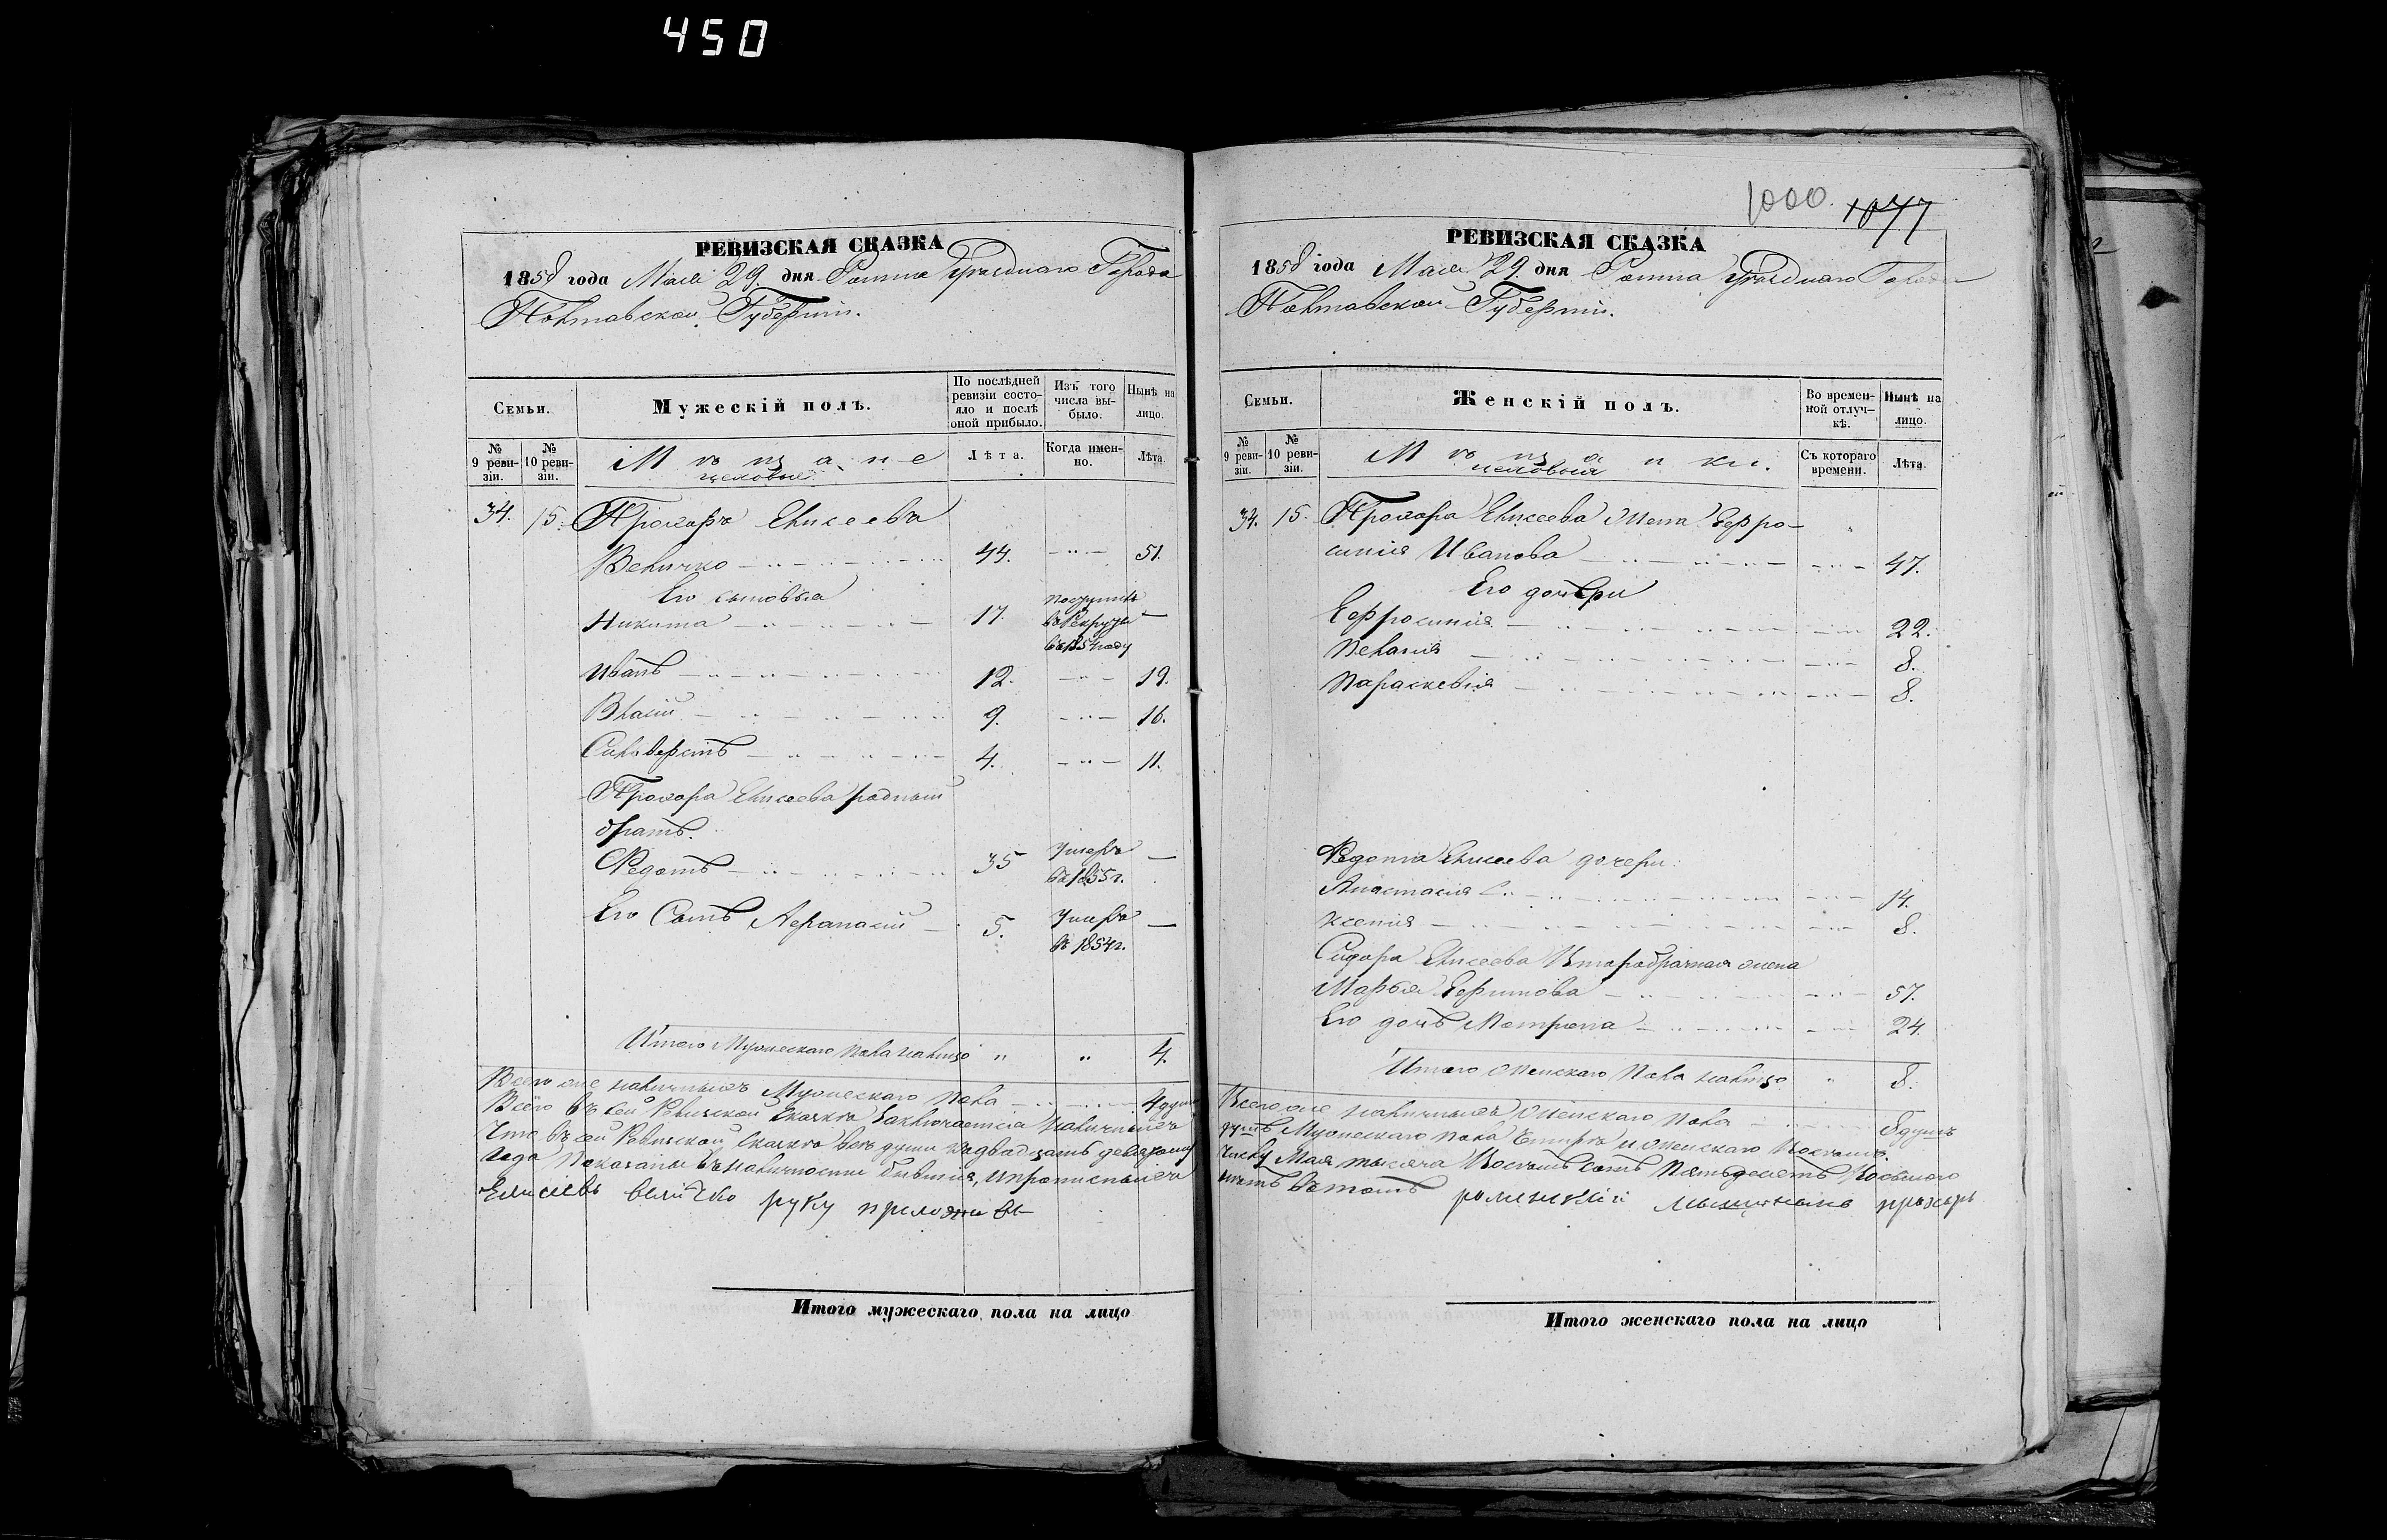 450
РЕВИЗСКАЯ СКАЗКА
1858 года Мая 29 дня Ромна Уѣзднаго Города
Полтавской Губерніи.
Семьи.
Мужескій полъ.
По послѣдней ревизіи состояло и послѣ оной прибыло.
Изъ того числа выбыло.
Нынѣ на лицо.
№ 9 ревизіи.
№ 10 ревизіи.
Мѣщане
цеховые
Лѣта.
Когда именно.
Лѣта.
34. 15. Прохоръ Елисеевъ
Величко 44. 51.
Его сыновья
Никита 17. поступилъ
въ Рекруты
въ 1854 году
Иванъ 12. 19.
Власій 9. 16.
Сильверстъ 4. 11.
Прохора Елисеева родный
братъ.
Федотъ 35 умеръ
въ 1855 г.
Его Сынъ Афанасій 5. умеръ
въ 1854 г.
Итого Мужескаго пола налицо " " 4.
Всего же наличныхъ Мужескаго пола 4 души
Всего въ сей Ревизской Сказкѣ Заключается наличныхъ
Что въ сей Ревизской Сказкѣ всѣ души къ двадцать девятому
года показаны въ наличности бывшія, и прописныхъ
Елисеевъ величко руку приложивъ
1000. 1077
РЕВИЗСКАЯ СКАЗКА
1858 года Мая 29 дня Ромна Уѣзднаго Города
Полтавской Губерніи.
Семьи.
Женскій полъ.
Во временной отлучкѣ.
Нынѣ на лицо.
№ 9 ревизіи.
№ 10 ревизіи.
Мѣщанки.
цеховыя
Съ котораго времени.
Лѣта.
34. 15. Прохора Елисеева Жена Ефро-
синія Иванова 47.
Его дочери
Ефросинія 22.
Пелагія 8.
Параскевія 8.
Федота Елисеева дочери
Анастасія 14.
Ксенія 8.
Сидора Елисеева Второбрачная жена
Марья Ефимова 57.
Его дочь Матрона 24.
Итого Женскаго Пола налицо " 8.
Всего же наличныхъ Женскаго пола 8 душъ
душъ Мужескаго пола Четыре и Женскаго Восемь.
числу Мая тысяча Восемь сотъ Пятьдесятъ Восьмого
нѣтъ въ томъ роменский мещанинъ прохоръ
Итого мужескаго пола на лицо
Итого женскаго пола на лицо